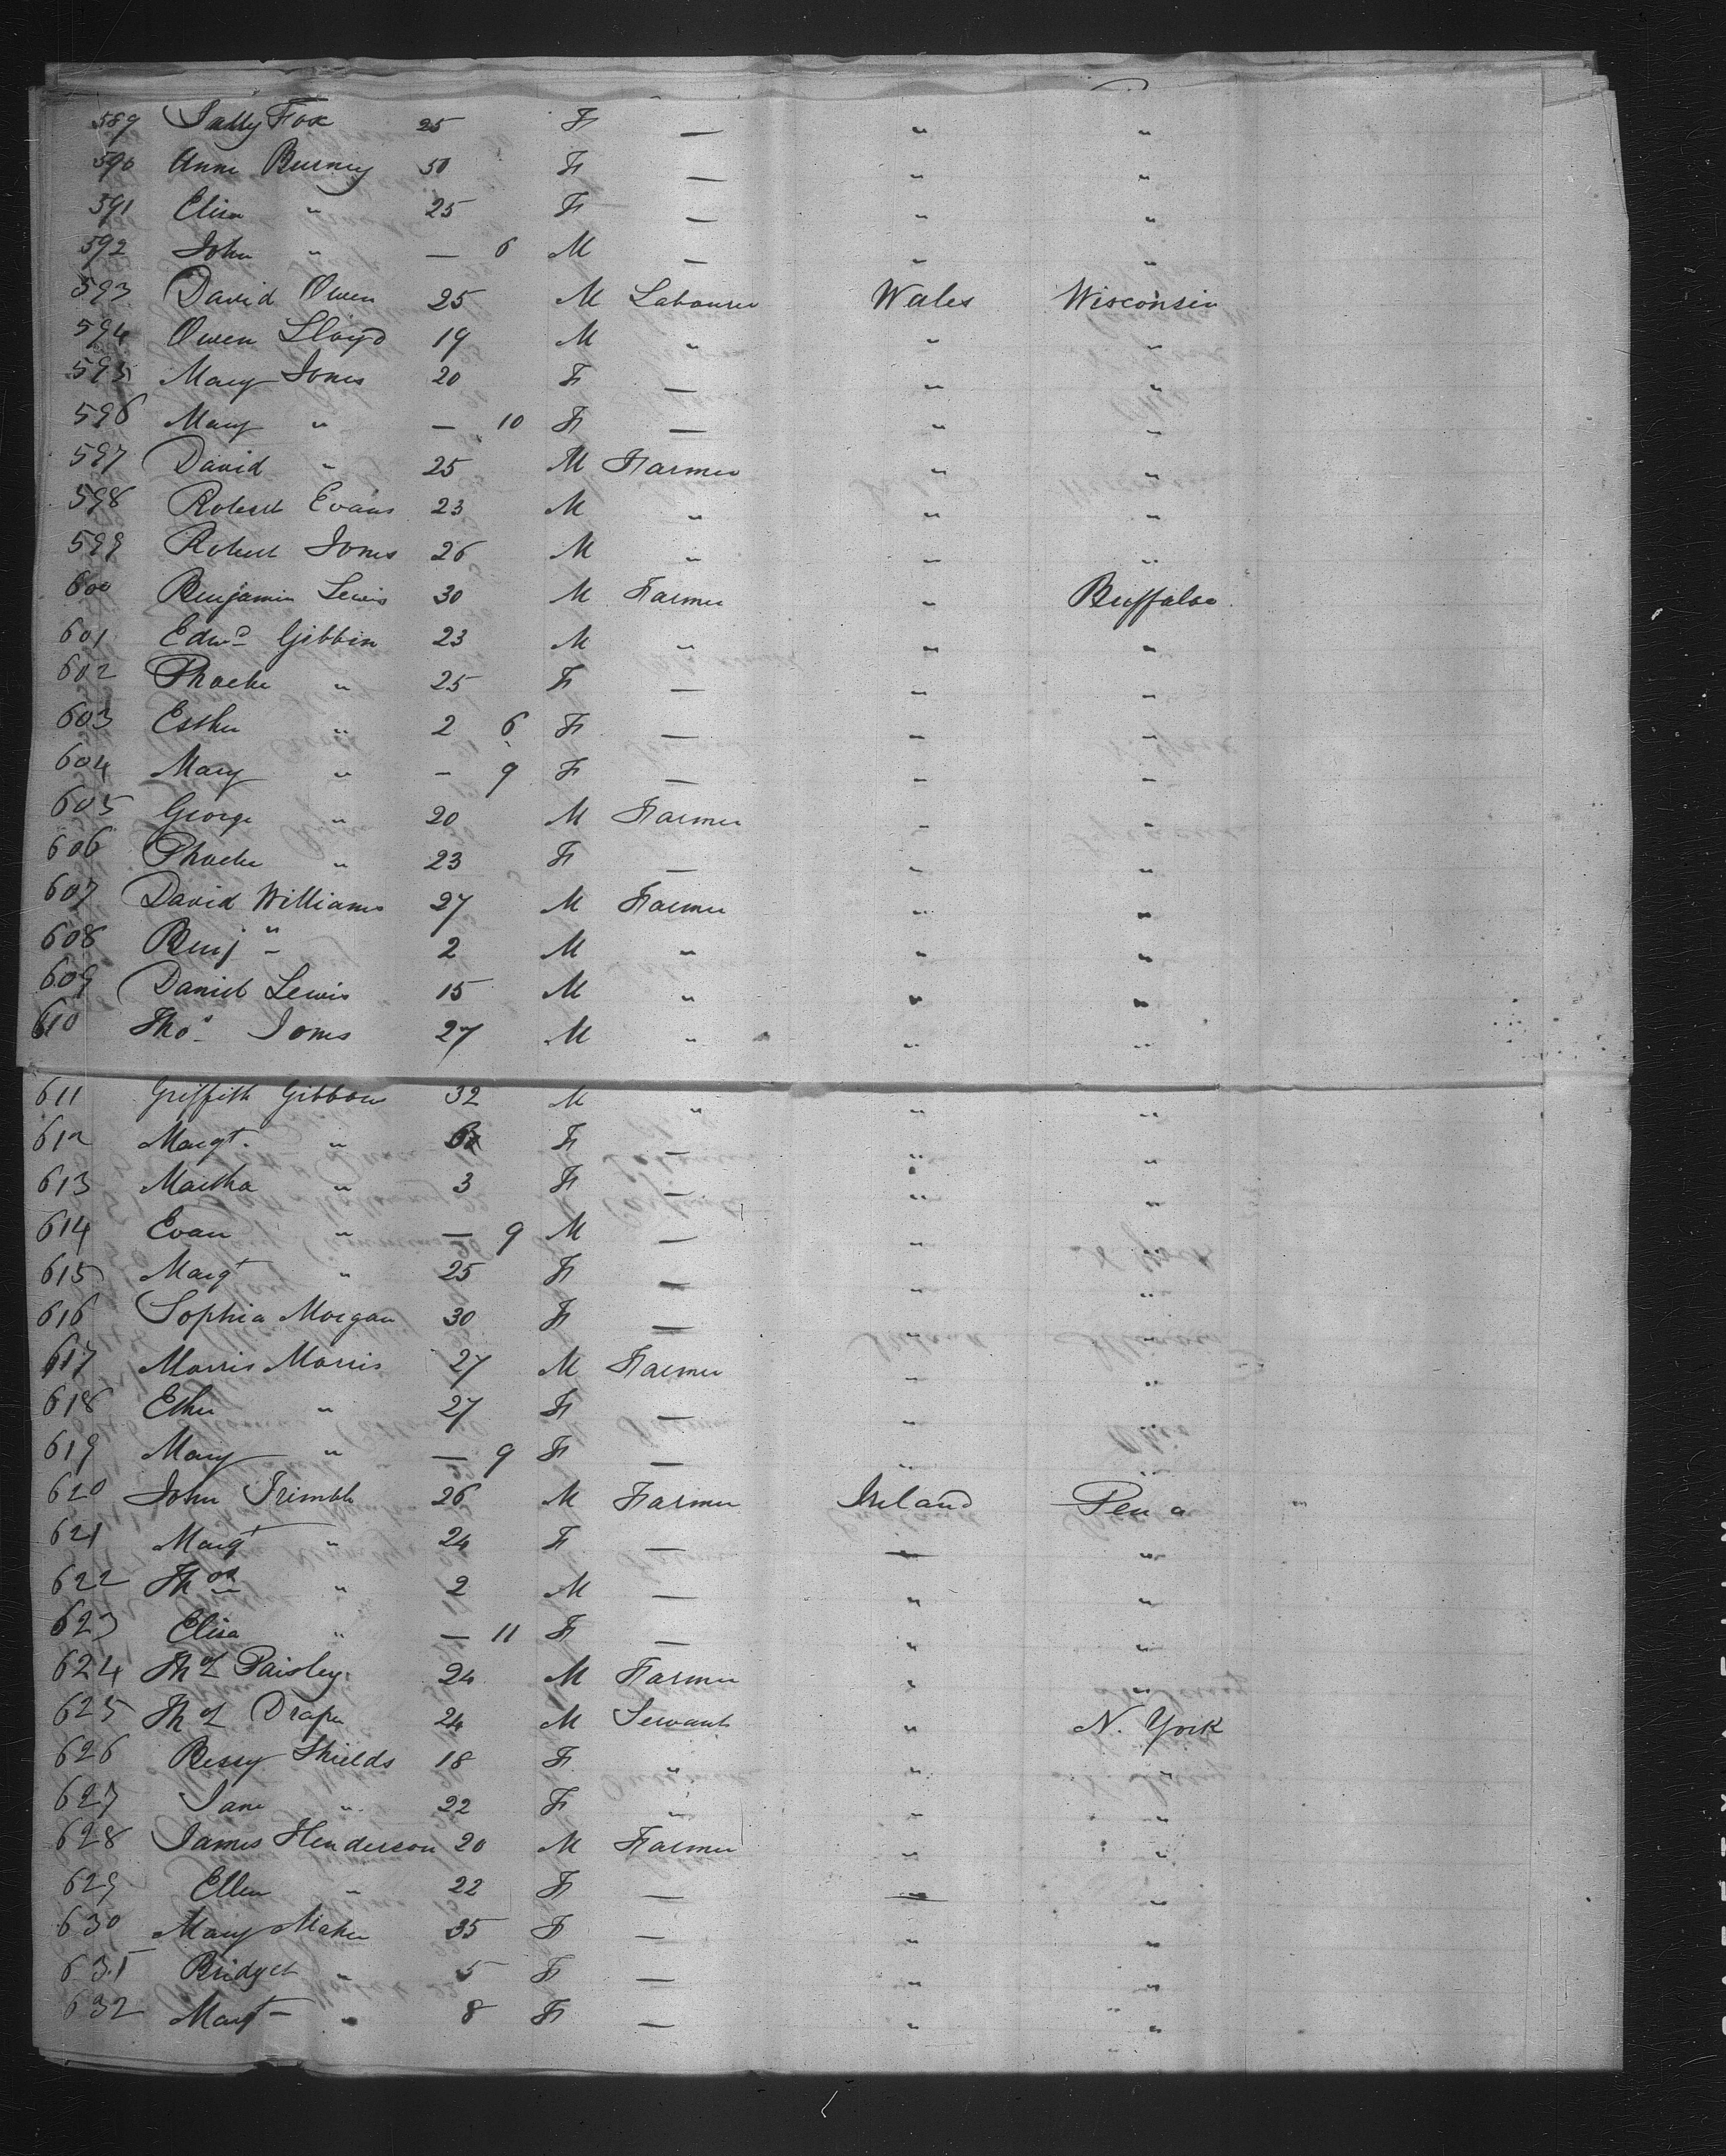 589 Sally Fox 25 F — " "
590 Anne Burney 50 F — " "
591 Elisa " 25 F — " "
592 John " — 6 M — " "
593 David Owen 25 M Labourer Wales Wisconsin
594 Owen Lloyd 19 M " " "
595 Mary Jones 20 F — " "
596 Mary " — 10 F — " "
597 David " 25 M Farmer " "
598 Robert Evans 23 M " " "
599 Robert Jones 26 M " " "
600 Benjamin Lewis 30 M Farmer " Buffaloe
601 Edwd Gibbin 23 M " " "
602 Phoebe " 25 F — " "
603 Esther " 2 6 F — " "
604 Mary " — 9 F — " "
605 George " 20 M Farmer " "
606 Phoebe " 23 F — " "
607 David Williams 27 M Farmer " "
608 Benj " 2 M " " "
609 Daniel Lewis 15 M " " "
610 Thos Jones 27 M " " "
611 Griffith Gibbon 32 M " " "
612 Margt " F — " "
613 Martha " 3 F — " "
614 Evan " — 9 M — " "
615 Margt " 25 F — " "
616 Sophia Morgan 30 F — " "
617 Morris Morris 27 M Farmer " "
618 Esther " 27 F — " "
619 Mary " — 9 F — " "
620 John Trimble 26 M Farmer Ireland Pena "
621 Margt " 24 F — " "
622 Thos " 2 M — " "
623 Elisa " — 11 F — " "
624 Thos Paisley 24 M Farmer " "
625 Thos Draper 24 M Servant " N. York
626 Bessy Shields 18 F " " "
627 Jane " 22 F " " "
628 James Henderson 20 M Farmer " "
629 Ellen " 22 F — " "
630 Mary Maher 35 F — " "
631 Bridget " 5 F — " "
632 Margt " 8 F — " "